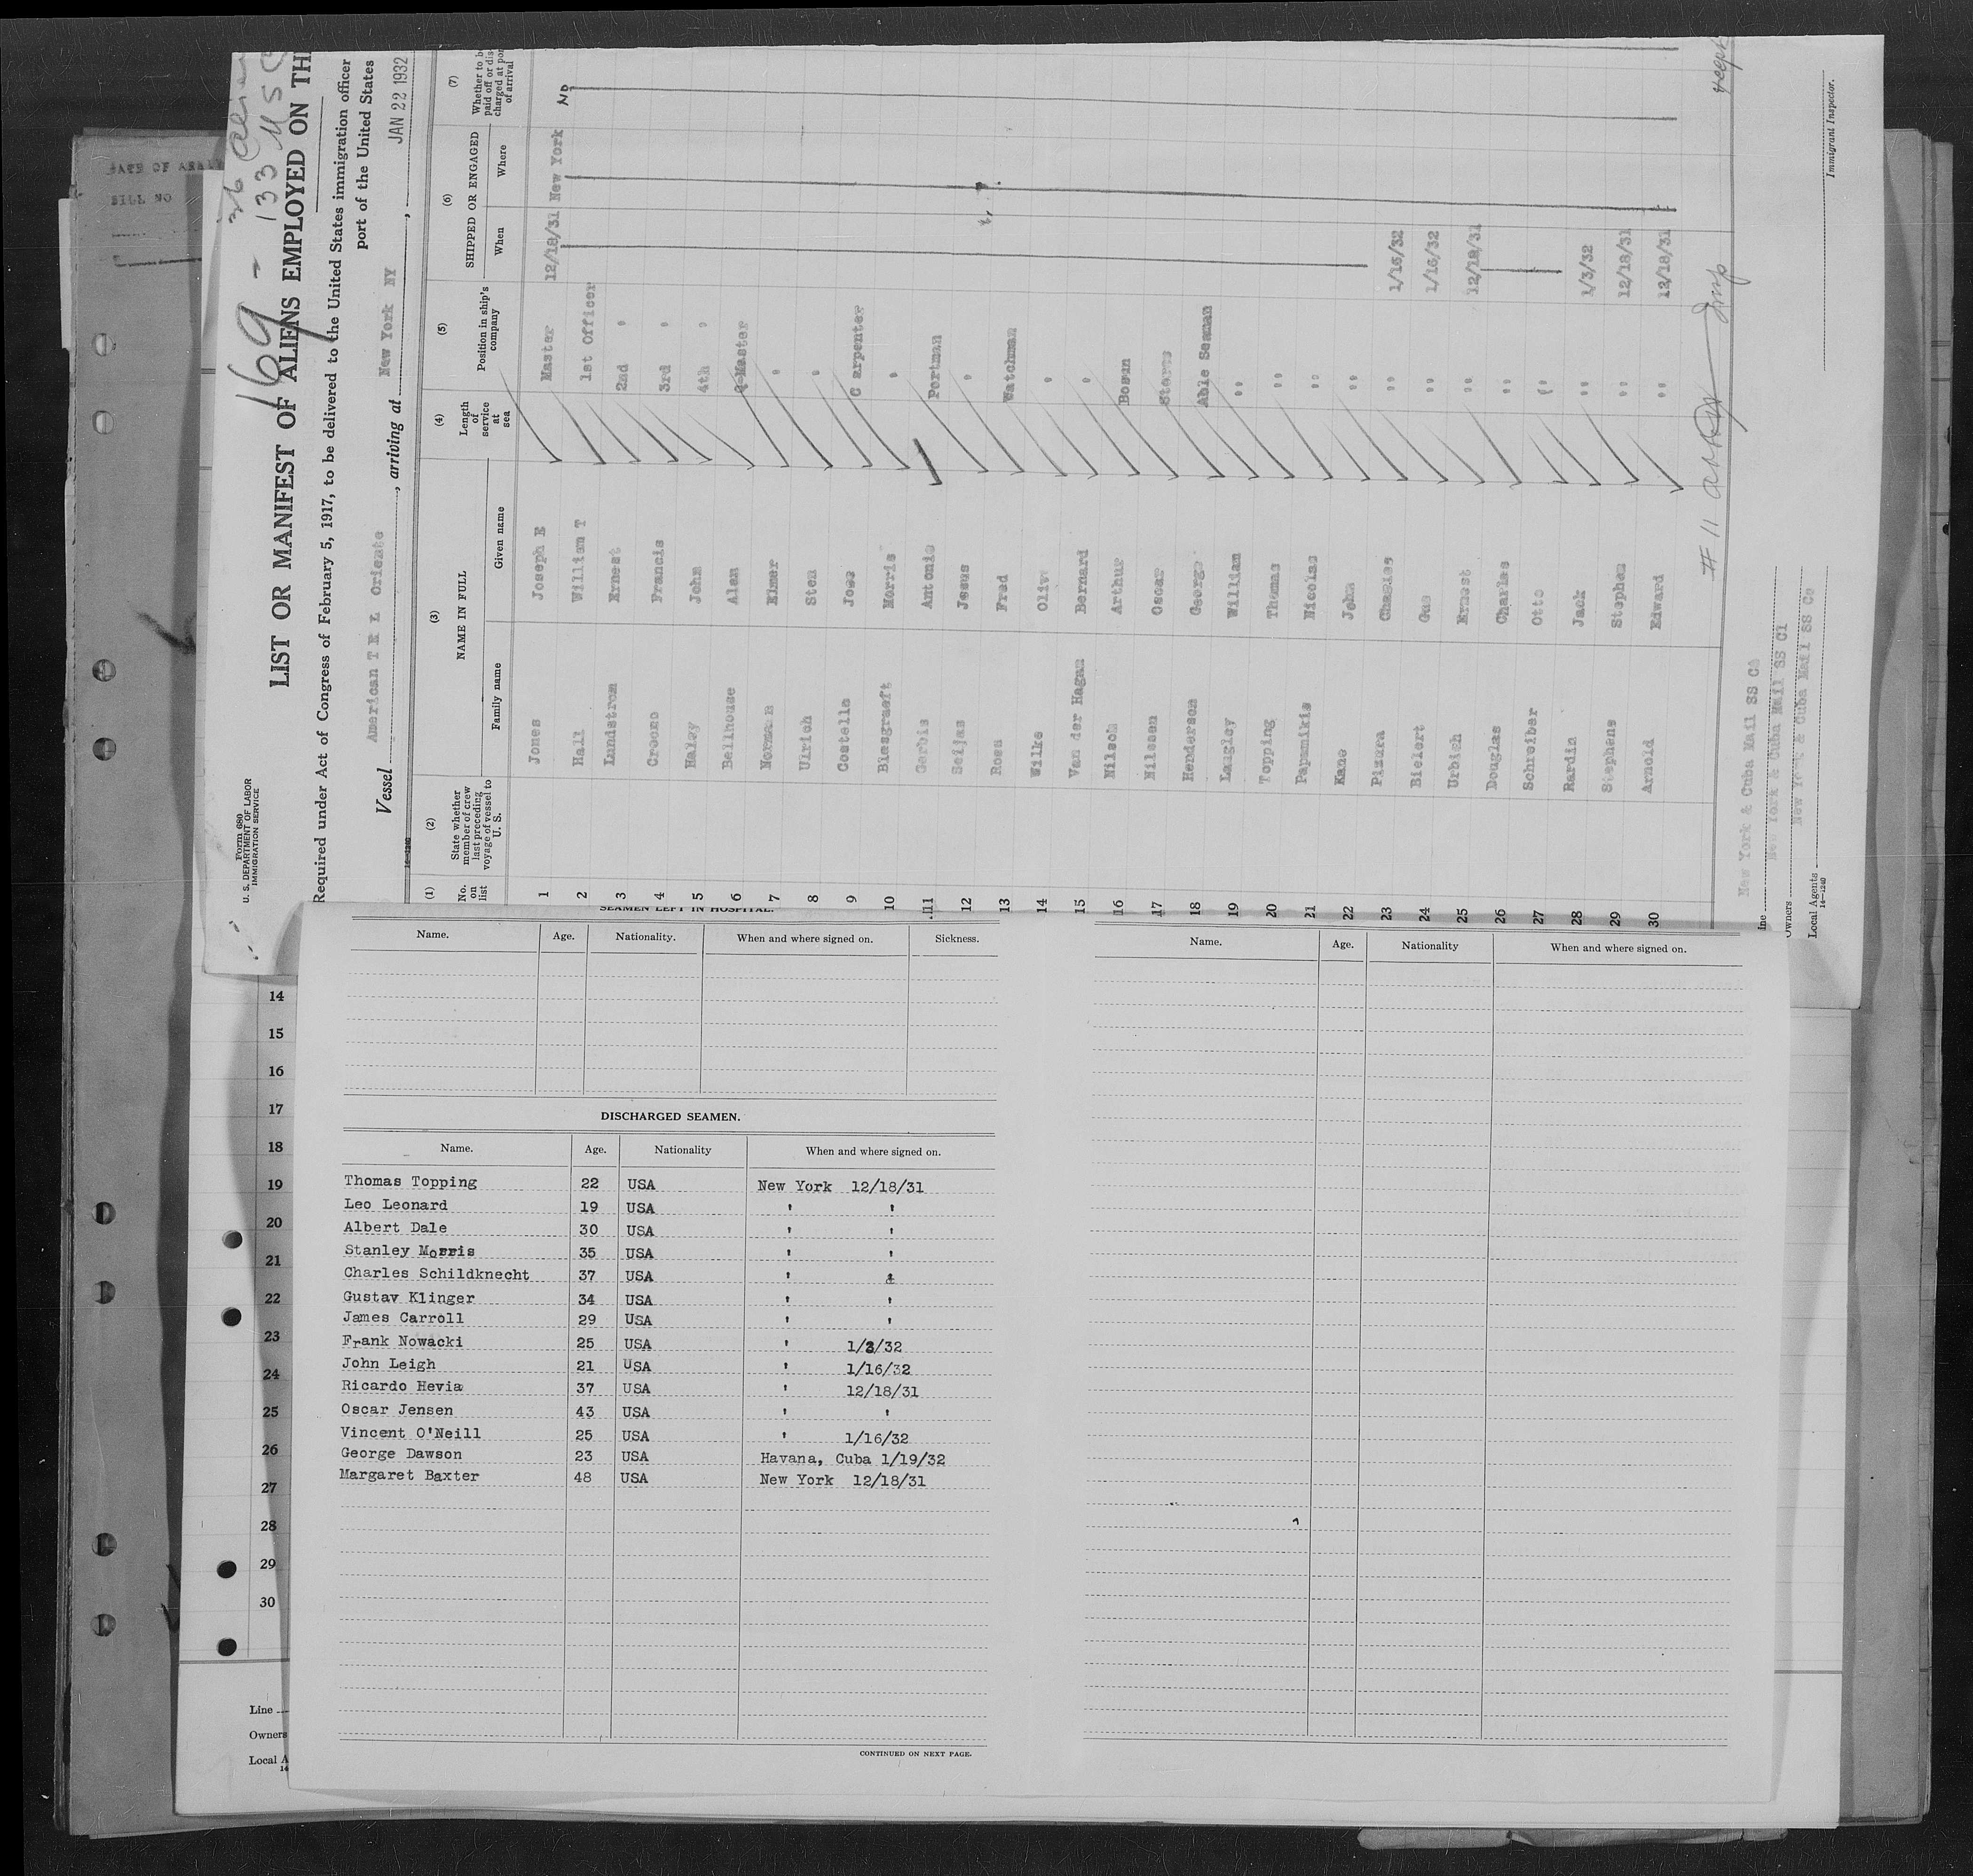 169 - 133 USC
Form 680
U. S. DEPARTMENT OF LABOR
IMMIGRATION SERVICE
LIST OR MANIFEST OF ALIENS EMPLOYED ON TH
Required under Act of Congress of February 5, 1917, to be delivered to the United States immigration officer
port of the United States
Vessel American T E L Oriente, arriving at New York NY, JAN 22 1932
(1) (2) (3) (4) (5) (6) (7)
No. on list
State whether member of crew last preceding voyage of vessel to U. S.
NAME IN FULL
Family name Given name
Length of service at sea
Position in ship's company
SHIPPED OR ENGAGED
When Where
Whether to be paid off or dis- charged at por of arrival
1 Jones Joseph E Master 12/18/31 New York No
2 Hall William T 1st Officer
3 Lundstrom Ernest 2nd "
4 Francis 3rd "
5 Haley John 4th "
6 Bellhouse Alan Q-Master
7 Norman Elmer "
8 Ulrich Sten "
9 Costella Jose C arpenter
10 Blasgraeft Morris "
11 Gerbis Antonio Portman
12 Seijas Jesus "
13 Ross Fred Watchman
14 Wilke "
15 Van der Hagan Bernard "
16 Nilsch Arthur Bosun
17 Nilssen Oscar
18 Henderson George Able Seaman
19 Langley William "
20 Topping Thomas "
21 Papamikis Nicolas "
22 Kane John "
23 Pizura Charles " 1/16/32
24 Bielert Gus " 1/16/32
25 Urbich Ernest " 12/18/31
26 Douglas Charles "
27 Schreiber Otto "
28 Rardin Jack " 1/3/32
29 Stephens Stephen " 12/18/31
30 Arnold Edward " 12/18/31
# 11
ine New York & Cuba Mail SS Co
Owners New York & Cuba Mail SS Cl
Local Agents New York & Cuba Mail SS Co
14—1240
Immigrant Inspector.
SEAMEN LEFT IN HOSPITAL.
Name. Age. Nationality. When and where signed on. Sickness.
DISCHARGED SEAMEN.
Name. Age. Nationality When and where signed on.
Thomas Topping 22 USA New York 12/18/31
Leo Leonard 19 USA ' '
Albert Dale 30 USA ' '
Stanley Morris 35 USA ' '
Charles Schildknecht 37 USA '
Gustav Klinger 34 USA ' '
James Carroll 29 USA ' '
Frank Nowacki 25 USA ' 1/3/32
John Leigh 21 USA ' 1/16/32
Ricardo Hevia 37 USA ' 12/18/31
Oscar Jensen 43 USA ' '
Vincent O'Neill 25 USA ' 1/16/32
George Dawson 23 USA Havana, Cuba 1/19/32
Margaret Baxter 48 USA New York 12/18/31
CONTINUED ON NEXT PAGE.
Name. Age. Nationality When and where signed on.
14
15
16
17
18
19
20
21
22
23
24
25
26
27
28
29
30
Line
Owners
Local A
14